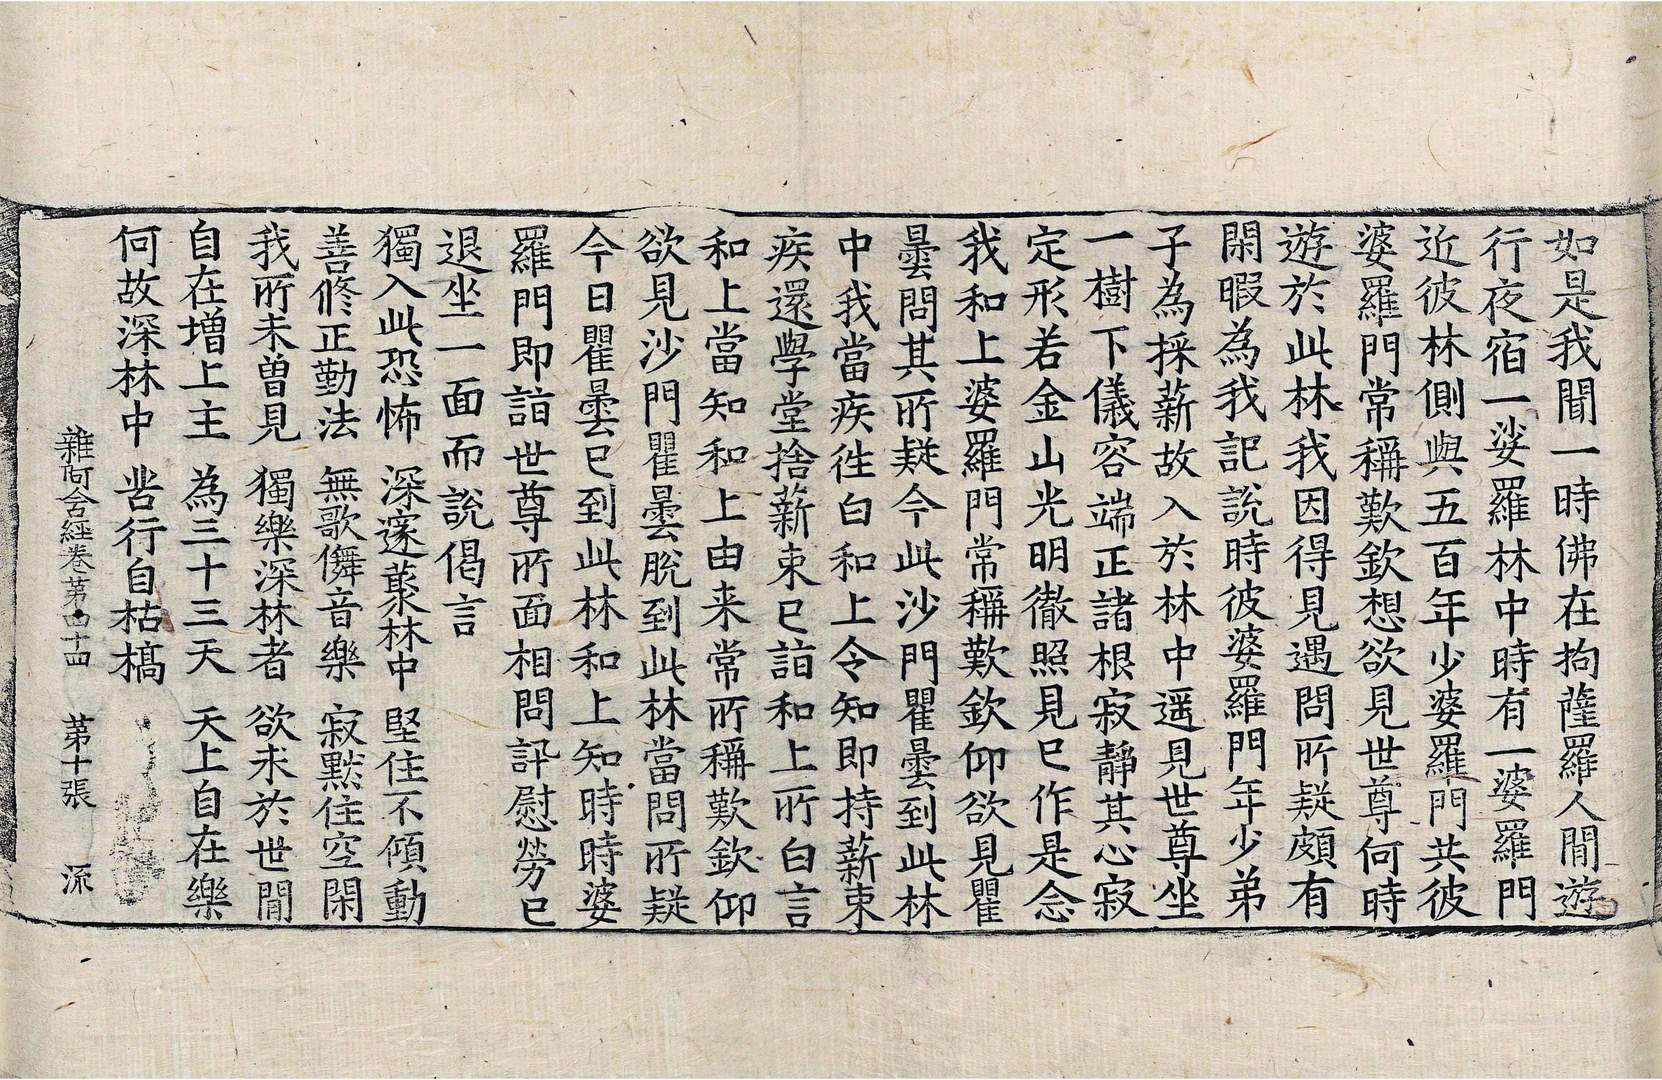 如是我聞一時佛在拘薩羅人閒遊
行夜宿一娑羅林中時有一婆羅門
近彼林側與五百年少婆羅門共彼
婆羅門常稱歎欽想欲見世尊何時
遊於此林我因得見遇問所疑頗有
閑暇為我記說時彼婆羅門年少弟
子為採薪故入於林中遥見世尊坐
一樹下儀容端正諸根寂靜其心寂
定形若金山光明徹照見已作是念
我和上婆羅門常稱歎欽仰欲見瞿
曇問其所疑今此沙門瞿曇到此林
中我當疾往白和上令知即持薪束
疾還學堂捨薪束已詣和上所白言
和上當知和上由来常所稱歎欽仰
欲見沙門瞿曇脫到此林當問所疑
今日瞿曇已到此林和上知時時婆
羅門即詣世尊所面相問訊慰勞已
退坐一面而說偈言
獨入此恐怖 深邃叢林中 堅住不傾動
善修正勤法 無歌儛音樂 寂默住空閑
我所未曾見 獨樂深林者 欲求於世閒
自在增上主 為三十三天 天上自在樂
何故深林中 苦行自枯槁
雜阿含經卷第四十四 第十張 流